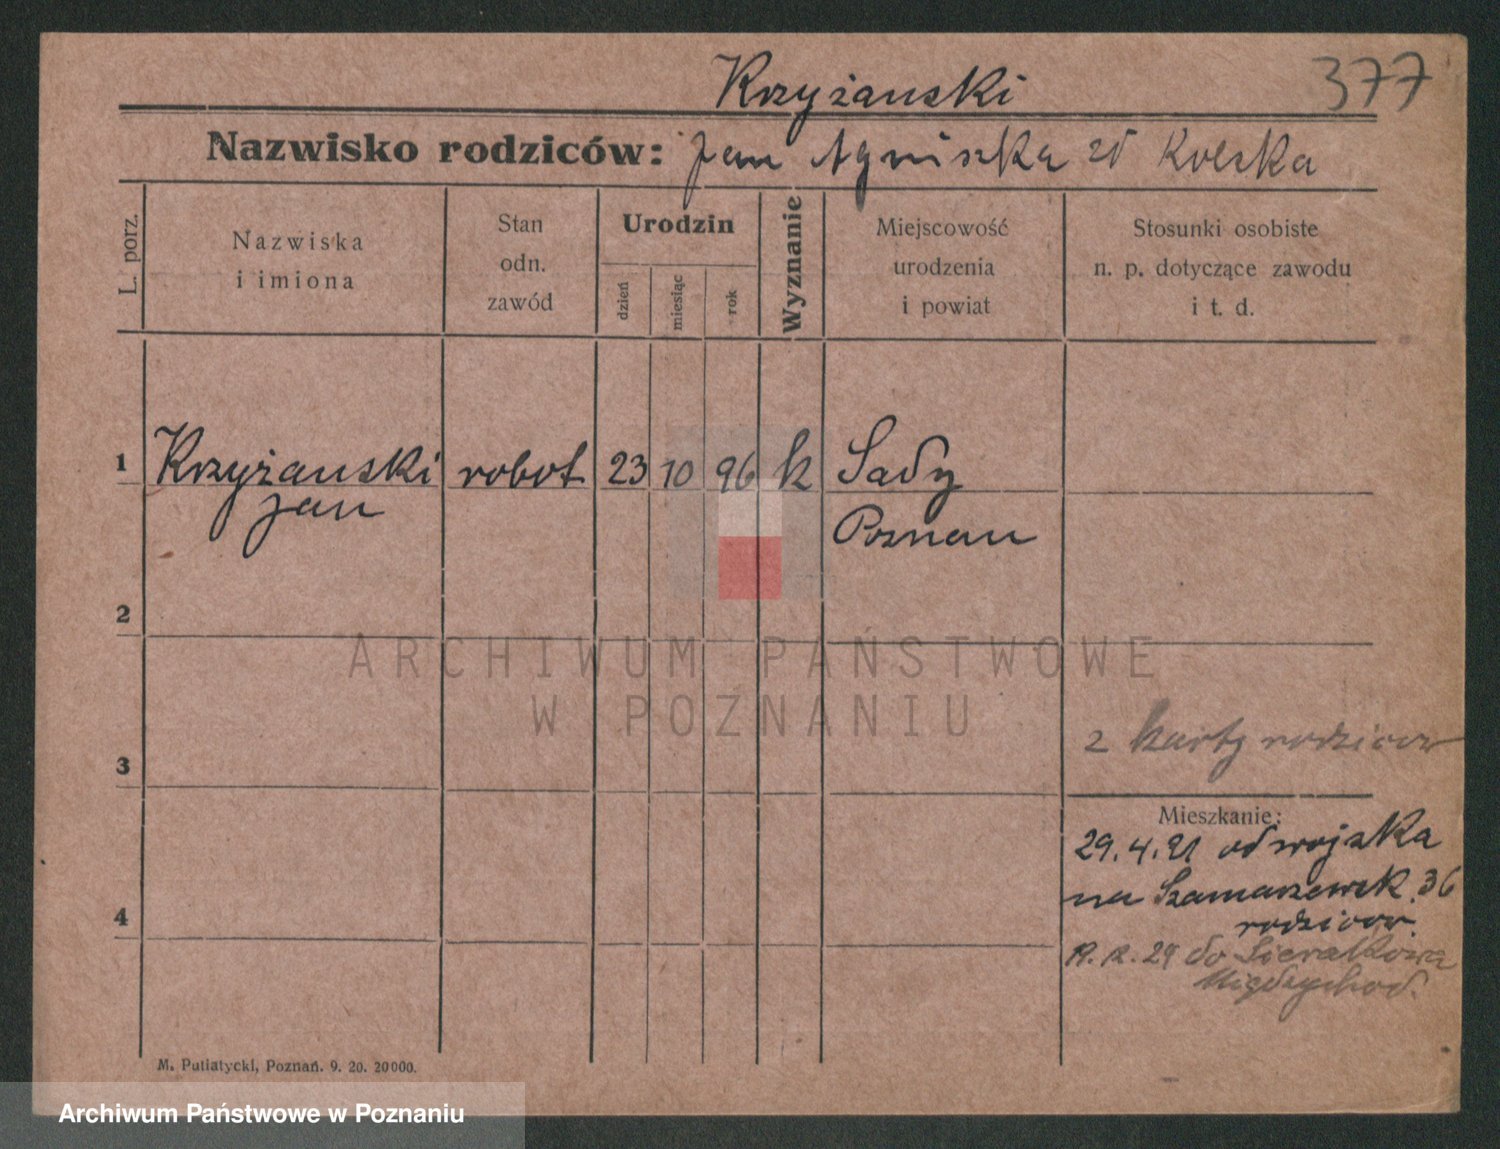 Krzyżanski
377
Nazwisko rodziców: Jan Agniszka zd
L. porz.
Nazwiska
i imiona
Stan
odn.
zawód
Urodzin
dzień
miesiąc
rok
Wyznanie
Miejscowość
urodzenia
i powiat
Stosunki osobiste
n. p. dotyczące zawodu
i t. d.
1 Krzyżanski robot 23 10 96 k Sady
Jan Poznan
2
ARCHIWUM PAŃSTWOWE
W POZNANIU
2 karty rodzicow
3
Mieszkanie:
29.4.21 od wojska
na Szamarzewsk. 36
4
rodzicow.
29 do Sierakowa
Międzychod.
M. Putiatycki, Poznań. 9. 20. 20000.
Archiwum Państwowe w Poznaniu